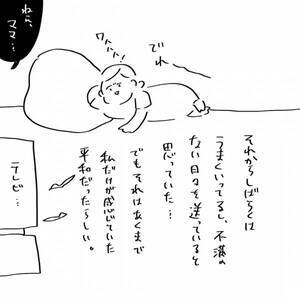 ねえ、
ママ…
ワハハハ!
でれ
それからしばらくは
うまくいってるし、不満の
ない日々を送っていると
思っていた…
でもそれはあくまで
私だけが感じていた
平和だったらしい。
テレビ…